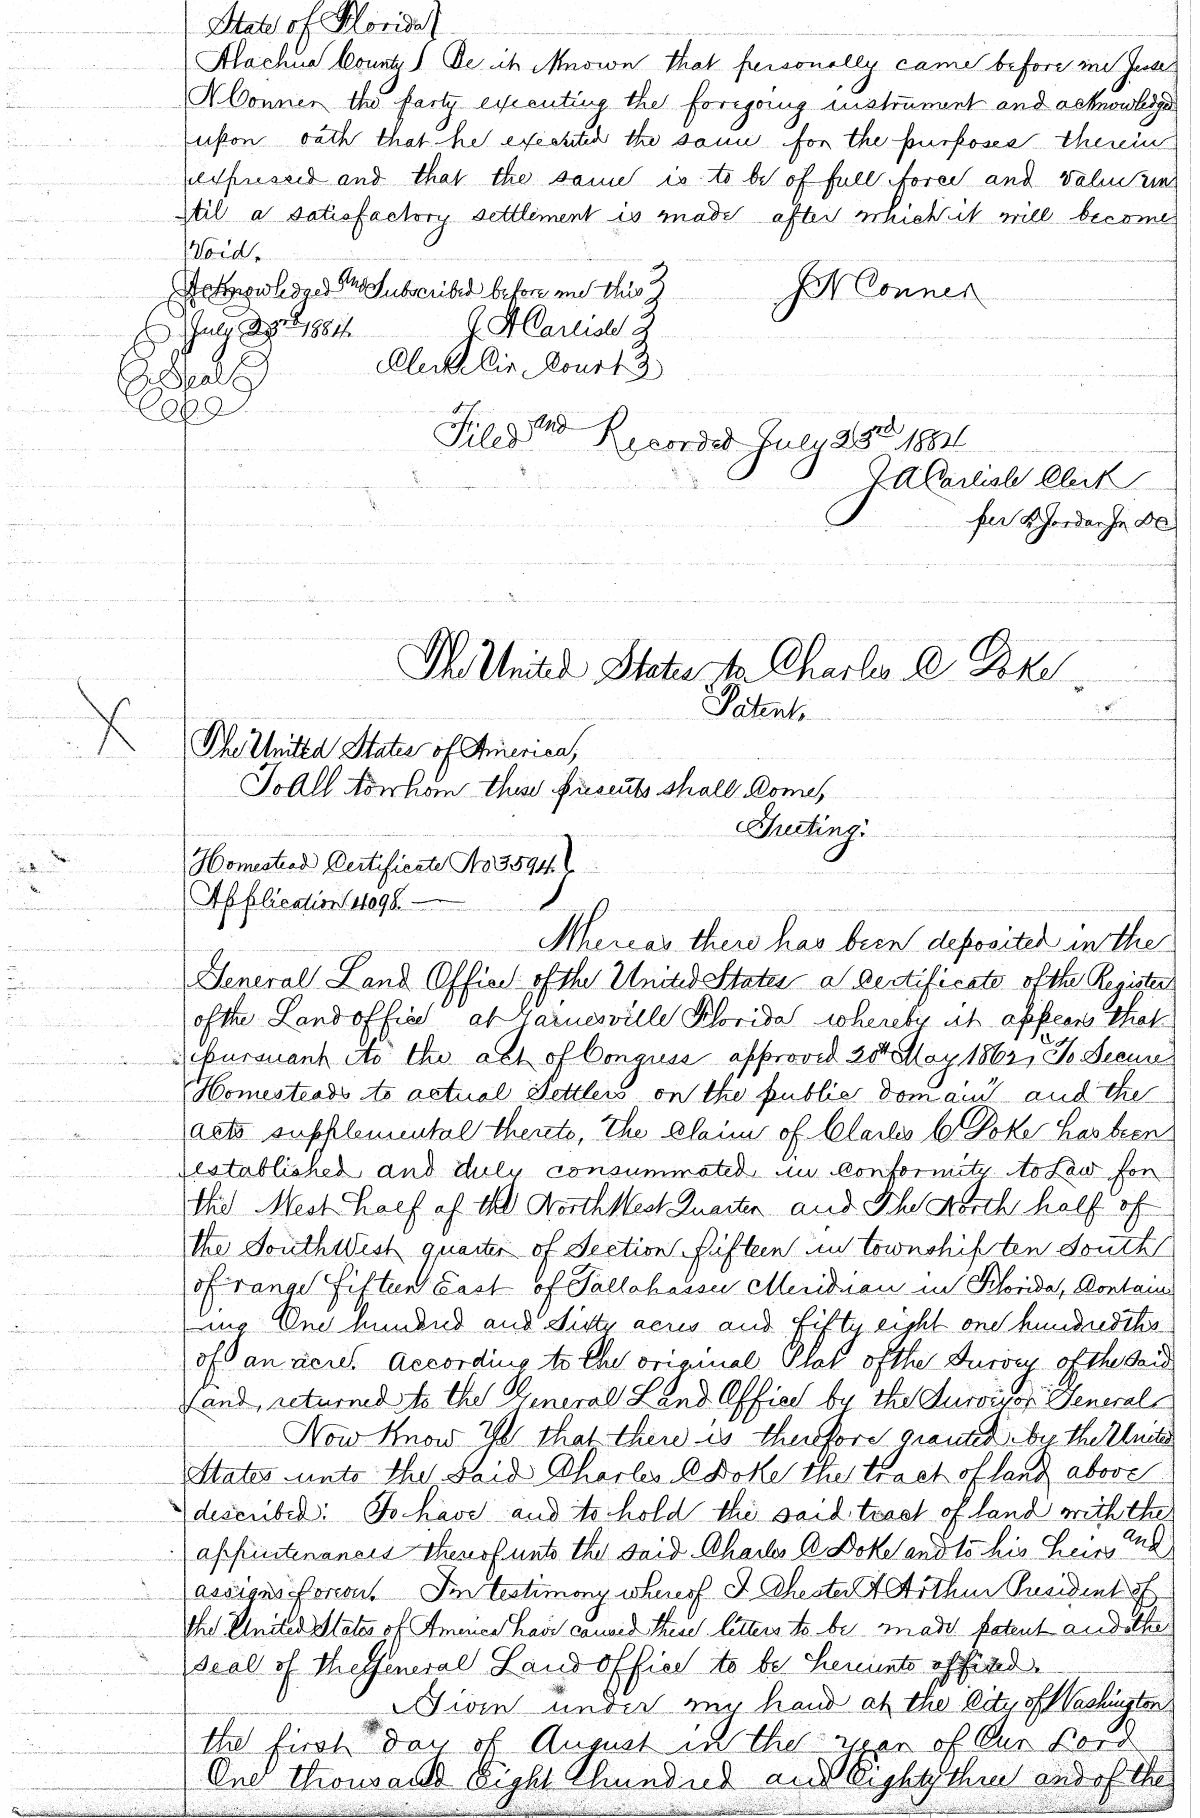 State of Florida }
Alachua County } Be it Known that personally came before me Jesse
N Conner the party executing the foregoing instrument and acknowledged
upon oath that he executed the same for the purposes therein
expressed and that the same is to be of full force and value un
til a satisfactory settlement is made after which it will become
Void.
Acknowledged and Subscribed before me this } J N Conner
July 23rd 1884 J A Carlisle }
Seal Clerk Cir Court }
Filed and Recorded July 23rd 1884
J A Carlisle Clerk
per Jordan Jr DC
The United States to Charles C Doke
Patent,
X
The United States of America,
To All to whom these presents shall Come,
Greeting:
Homestead Certificate No 3594 }
Application 4098. —
Whereas there has been deposited in the
General Land Office of the United States a Certificate of the Register
of the Land office at Gainesville Florida whereby it appears that
pursuant to the act of Congress approved 20th May 1862, "To Secure
Homesteads to actual Settlers on the public domain" and the
acts supplemental thereto, The Claim of Charles C Doke has been
established and duly consummated in conformity to Law for
the West half of the North West Quarter and The North half of
the South West quarter of Section fifteen in township ten South
of range fifteen East of Tallahassee Meridian in Florida, Contain
ing One hundred and Sixty acres and fifty eight one hundredths
of an acre. According to the original Plat of the Survey of the Said
Land, returned to the General Land Office by the Surveyor General
Now Know Ye that there is therefore granted by the United
States unto the said Charles C Doke the tract of land above
described: To have and to hold the said tract of land with the
appurtenances thereof unto the said Charles C Doke and to his heirs and
assigns forever. In testimony whereof I Chester A Arthur President of
the United States of America have caused these letters to be made patent and the
seal of the General Land office to be hereunto affixed.
Given under my hand at the City of Washington
the first day of August in the year of Our Lord
One thousand Eight hundred and Eighty three and of the